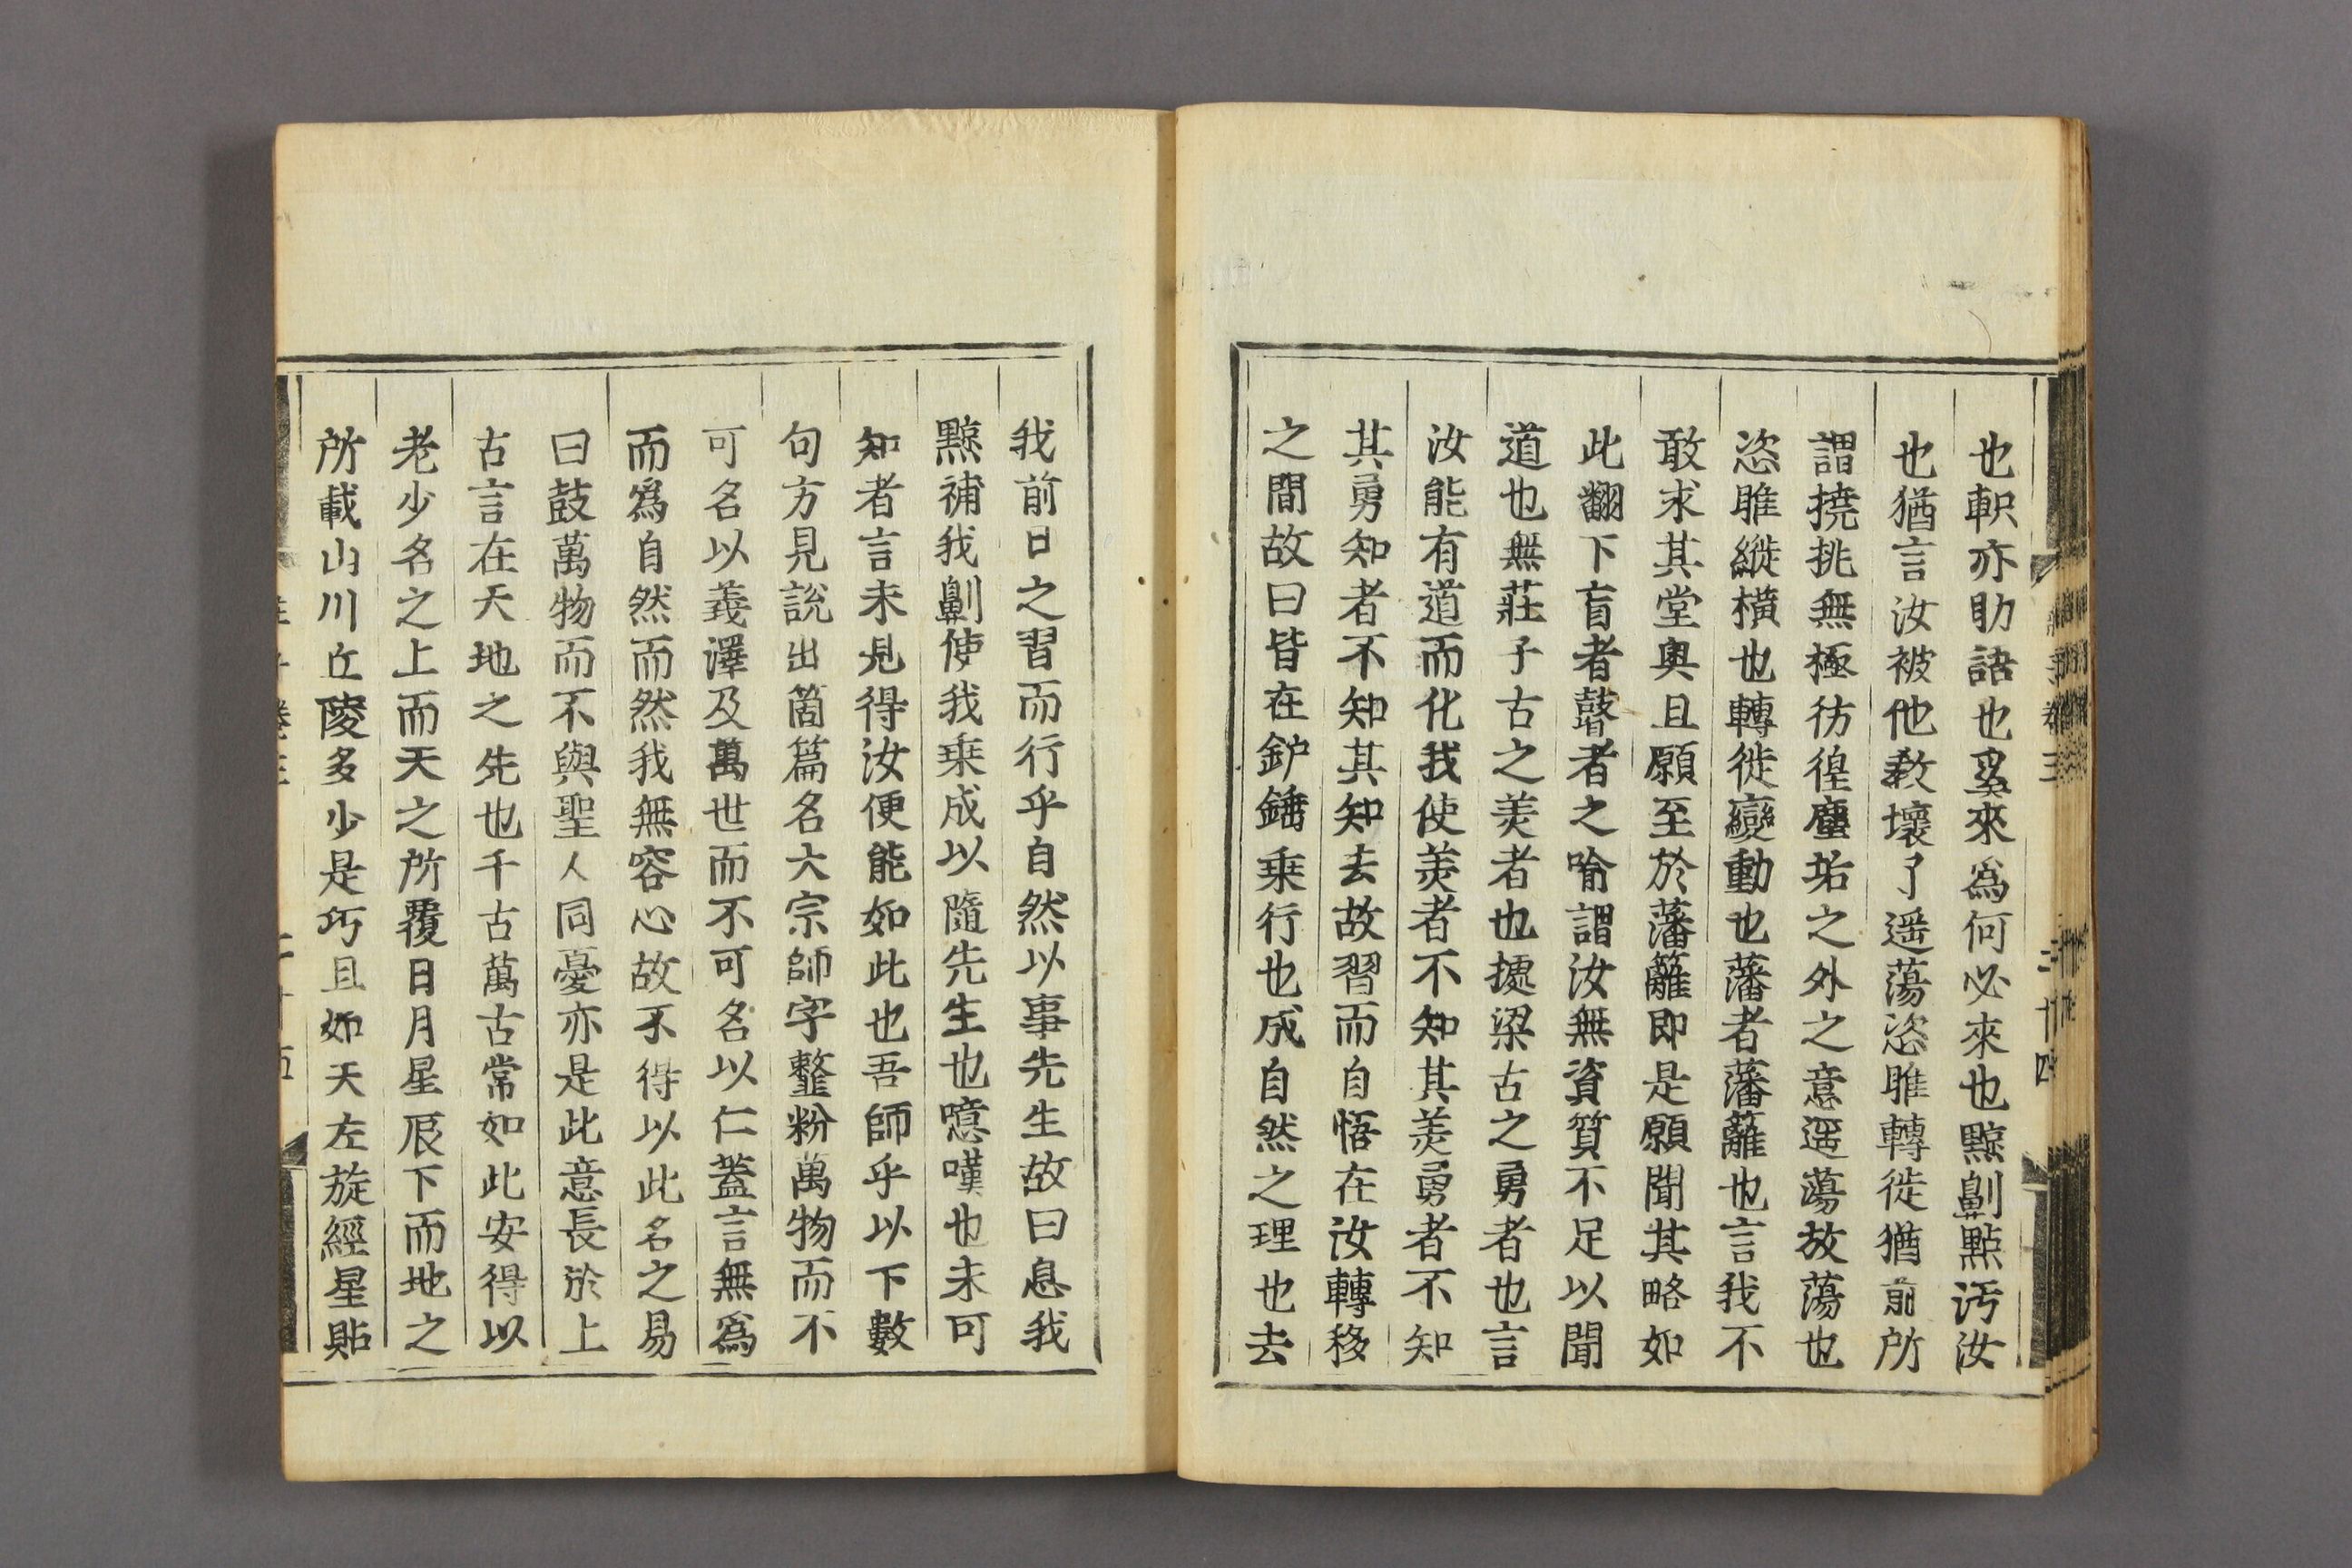 也軹亦助語也奚來爲何必來也黥劓點汚汝
也猶言汝被他教壞了遥蕩恣睢轉徙猶前所
謂撓挑無極彷徨塵垢之外之意遥蕩放蕩也
恣睢縱横也轉徙變動也藩者藩籬也言我不
敢求其堂奥且願至於藩籬即是願聞其略如
此翻下盲者瞽者之喻謂汝無資質不足以聞
道也無莊子古之美者也據梁古之勇者也言
汝能有道而化我使美者不知其美勇者不知
其勇知者不知其知去故習而自悟在汝轉移
之間故曰皆在鈩錘乗行也成自然之理也去
我前日之習而行乎自然以事先生故曰息我
黥補我劓使我乗成以隨先生也噫嘆也未可
知者言未見得汝便能如此也吾師乎以下數
句方見説出箇篇名大宗師字䪠粉萬物而不
可名以義澤及萬世而不可名以仁蓋言無爲
而爲自然而然我無容心故不得以此名之易
曰鼓萬物而不與聖人同憂亦是此意長於上
古言在天地之先也千古萬古常如此安得以
老少名之上而天之所覆日月星辰下而地之
所載山川丘陵多少是巧且如天左旋經星貼